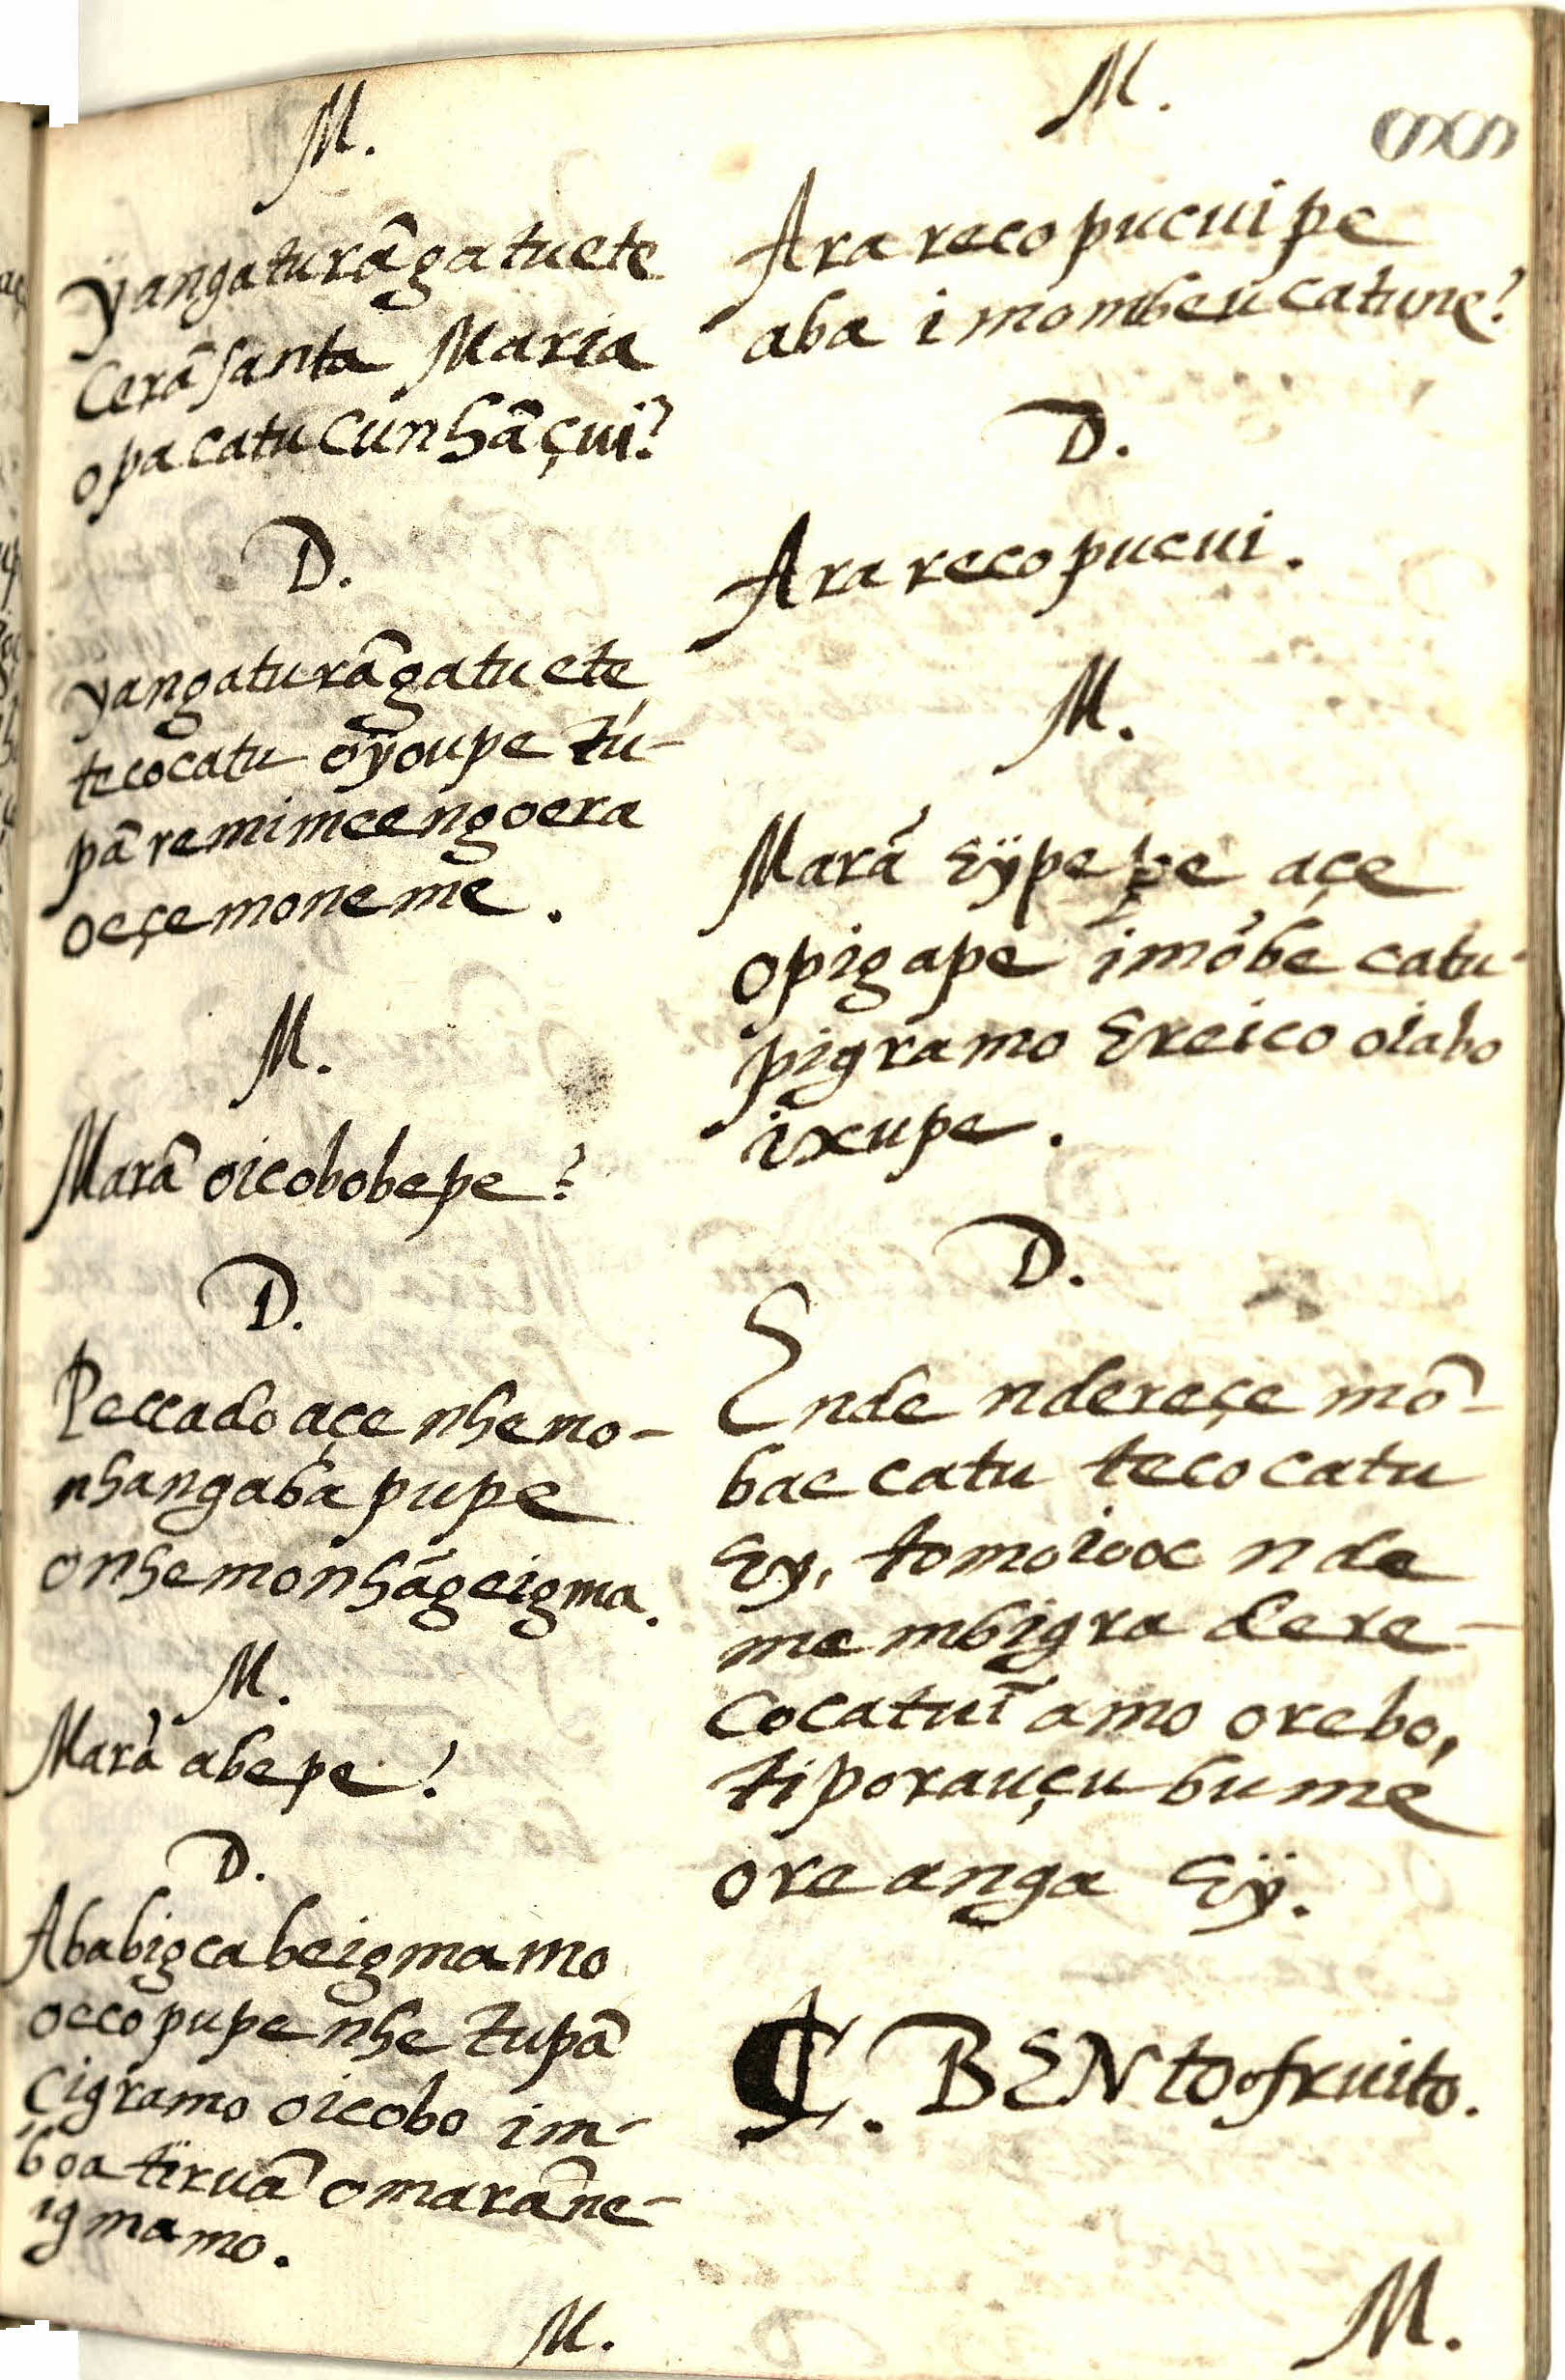 M.
yangaturâgatuete
Cerâ santa Maria
opacatu Cunhã çui?
D.
yangaturâgatuete
tecocatu oÿoupe Tu-
pã remimeengoera
oeçemoneme.
M.
Marã oicobobepe?
D.
Peccado açe nhemo-
nhangaba pupe
onhemonhãgeigma.
M.
Marã abepe?
D.
Ababigcabeigmamo
oecopupenhe Tupã
Cigramo oicobo im-
boa tiruã omarãne-
igmamo.
M.
M.
Ararecopucuipe
aba imombeucatune?
D.
Ararecopucui.
M.
Marã Eÿpe açe
opigape imõbe catu-
pigramo Ereico oiabo
ixupe.
D.
Ende ndereçe mõ-
bae catu tecocatu
Ey, tomoiooc nde
membigra dere-
Cocatuĩ amo orebo,
tiporauçubume
ore anga Eÿ.
C. BENtoofruito.
M.